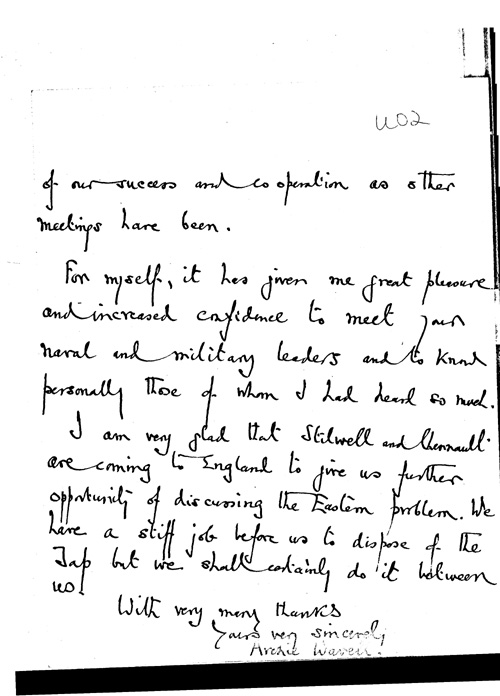 U02
of our success and cooperation as other
meetings have been.
For myself, it has given me great pleasure
and increased confidence to meet your
naval and military leaders and to know
personally those of whom I had heard so much.
I am very glad that Stilwell and Chennault
are coming to England to give us further
opportunity of discussing the Eastern problem. We
have a stiff job before us to dispose of the
Jap but we shall certainly do it between
us.
With very many thanks
Yours very sincerely
Archie Wavell.